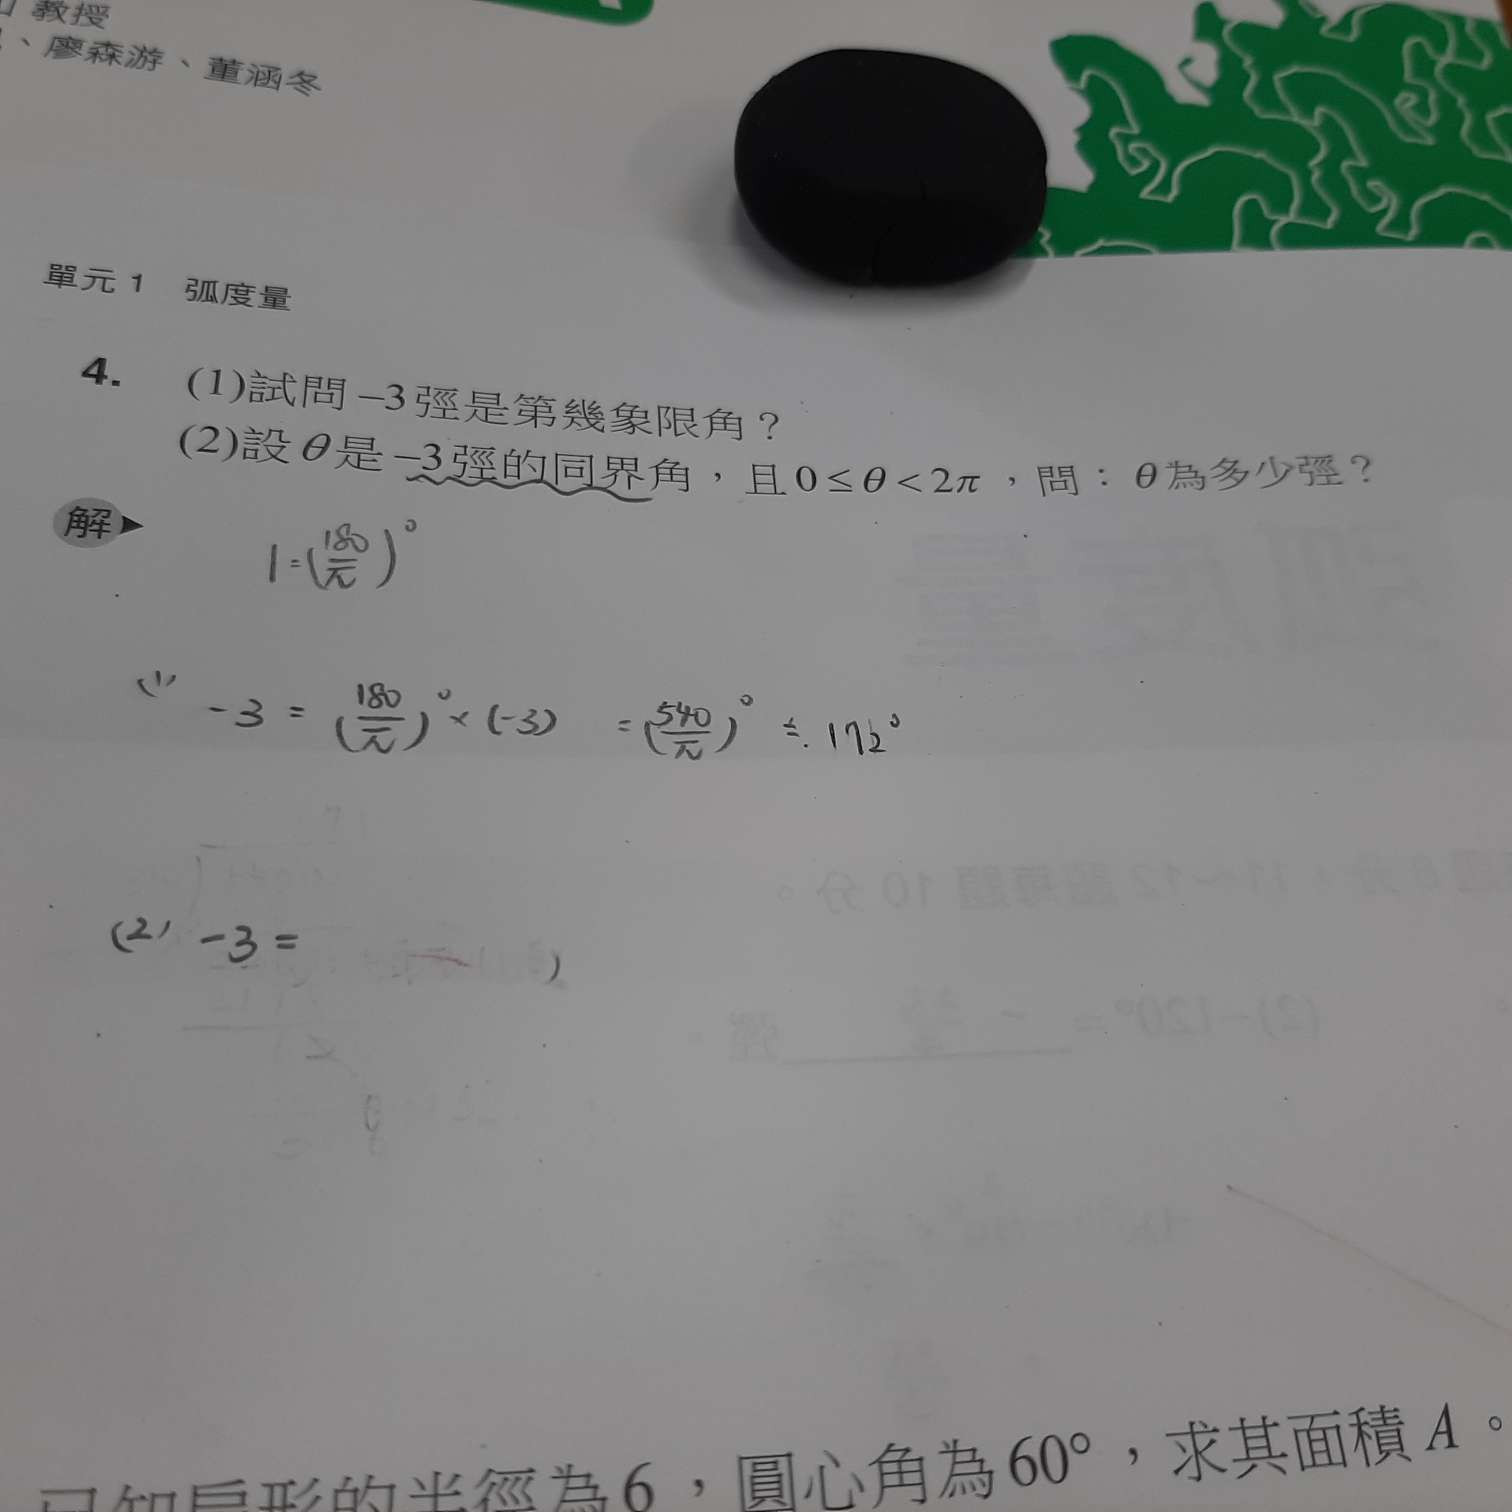 教授
、廖森游、董涵冬
單元 1 弧度量
4. (1)試問 −3 弳是第幾象限角?
(2)設 θ 是 −3 弳的同界角,且 0 ≤ θ < 2π ,問: θ 為多少弳?
解
1 = (180/π)°
(1) -3 = (180/π)° × (-3) = (540/π)° ≒ 172°
(2) -3 =
已知扇形的半徑為 6 ,圓心角為 60° ,求其面積 A 。